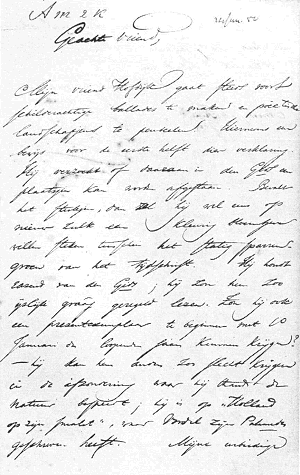 A M 2 K
Geachte Vriend,
Mijn vriend Hofdijk gaat steeds voort
schilderachtige ballades te maken en poëtische
landschappen te penseelen. Hiernevens een
bewijs voor de eerste helft der verklaring.
Hij verzoekt of daaraan in den Gids een
plaatsjen kan worden afgestaan. Bevalt
het stukjen, dan hij wel eens op
nieuw zulk een kleurig
willen steken tusschen het statig sparren-
groen van het tijdschrift. Hij houdt
van den Gids; hij zou hem zoo
gaarne geregeld lezen. Zou hij ook
een presentexemplaar te beginnen met 10
Januari des loopende jaars kunnen krijgen?
— hij kan hem anders zoo slecht krijgen
in de afzondering waar hij thands de
natuur bespiedt; hij is op "Holland
op zijn smalst", waar Vondel zijn Palamedes
geschreven heeft. Mijne eerbiedige